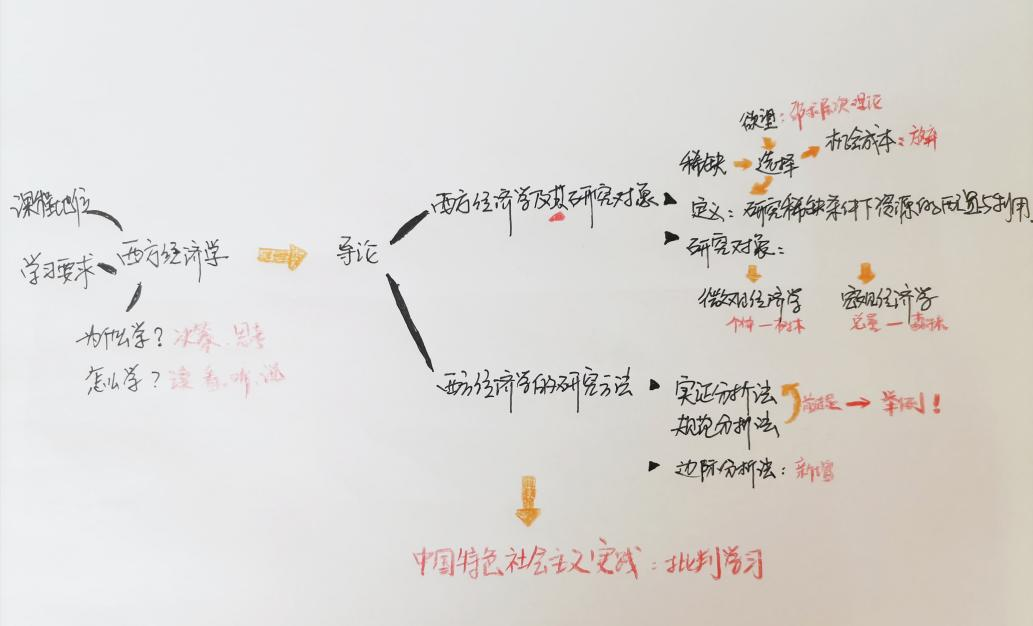 欲望：需求层次理论
机会成本：放弃
稀缺
选择
课程地位
西方经济学及其研究对象
定义：研究稀缺条件下资源的配置与利用
学习要求
西方经济学
导论
研究对象：
微观经济学
宏观经济学
个体—树木
总量—森林
为什么学？决策、思考
怎么学？读、看、听、说
西方经济学的研究方法
实证分析法
前提
举例！
规范分析法
边际分析法：新增
中国特色社会主义实践：批判学习